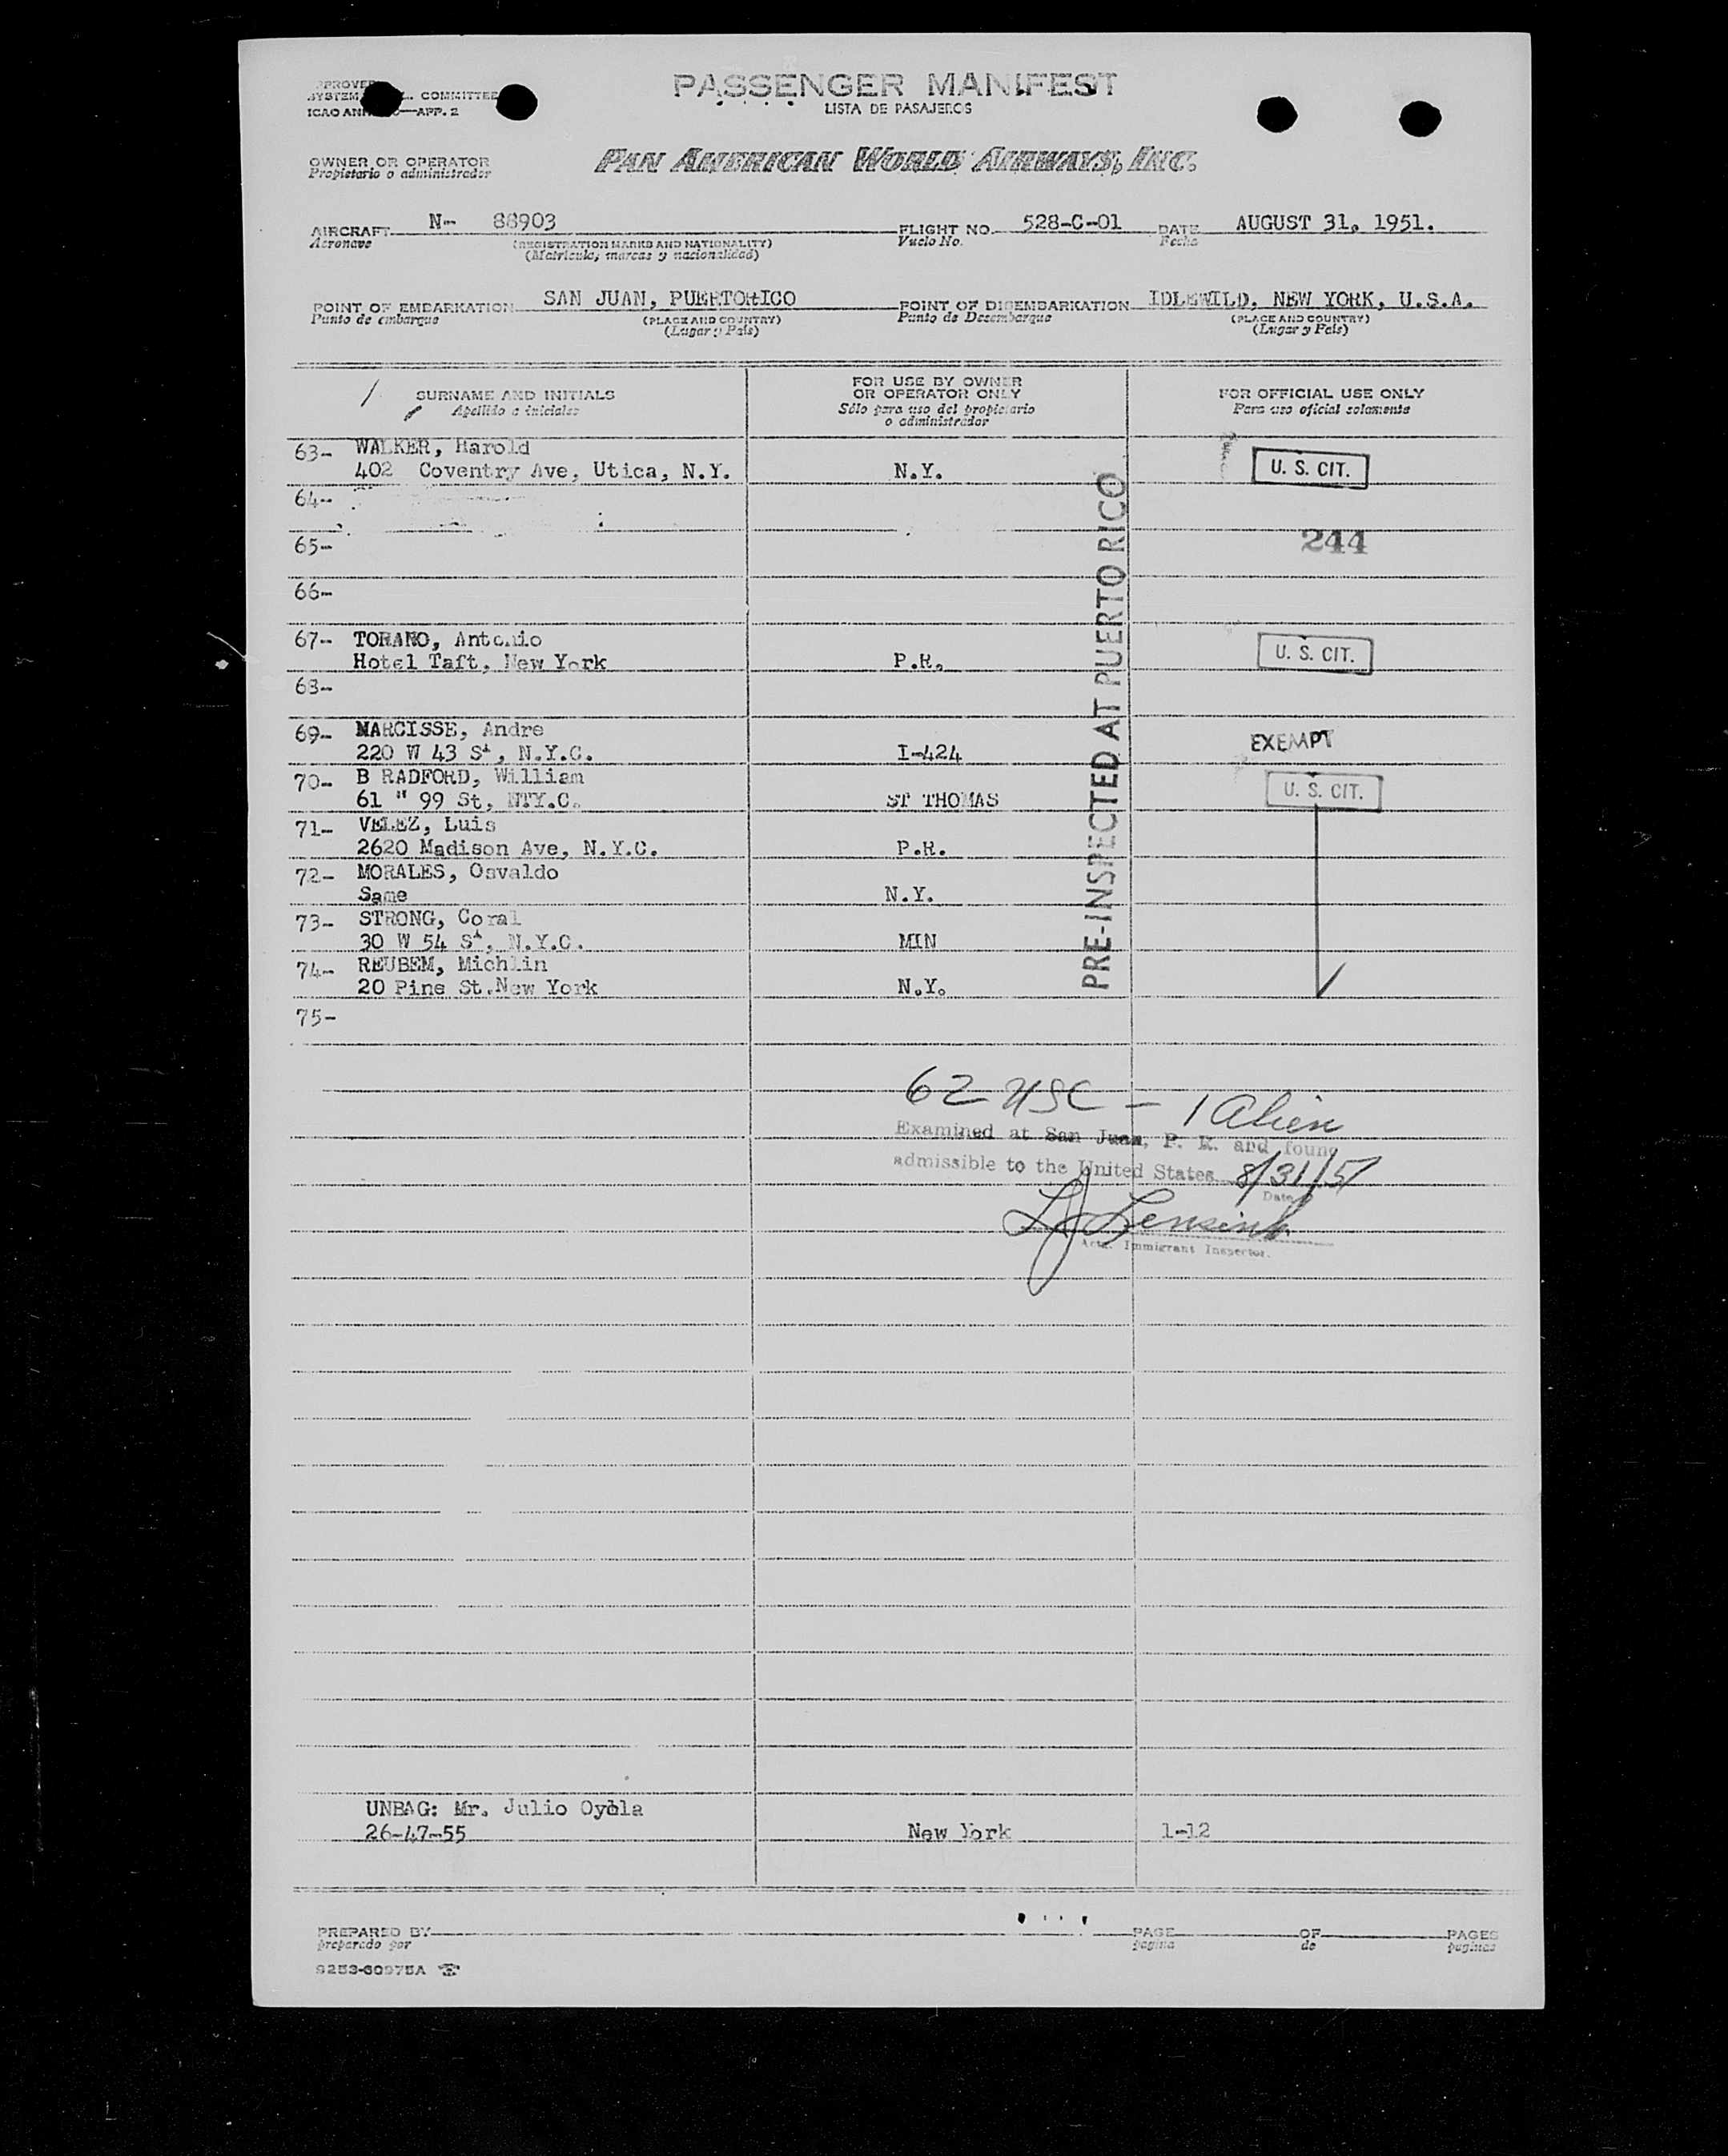 PASSENGER MANIFEST
LISTA DE PASAJEROS
COMMITTEE
APP. 2
OWNER OR OPERATOR
Propietario o administrador
PAN AMERICAN WORLD AIRWAYS, INC.
AIRCRAFT N- 88903 FLIGHT NO. 528-C-01 DATE AUGUST 31, 1951.
Aeronave (REGISTRATION MARKS AND NATIONALITY) Vuelo No. Fecha
(Matricula, marcas y nacionalidad)
POINT OF EMBARKATION SAN JUAN, PUERTORICO POINT OF DISEMBARKATION IDLEWILD, NEW YORK, U.S.A.
Punto de embarque (PLACE AND COUNTRY) Punto de Desembarque (PLACE AND COUNTRY)
(Lugar y País) (Lugar y País)
SURNAME AND INITIALS
Apellido e iniciales
FOR USE BY OWNER
OR OPERATOR ONLY
Sólo para uso del propietario
o administrador
FOR OFFICIAL USE ONLY
Para uso oficial solamente
63- WALKER, Harold
402 Coventry Ave, Utica, N.Y. N.Y. U. S. CIT.
64-
65- 244
66-
67- TORANO, Antonio
Hotel Taft, New York P.R. U. S. CIT.
68-
69- NARCISSE, Andre
220 W 43 St, N.Y.C. I-424 EXEMPT
70- B RADFORD, William
61 " 99 St, NTY.C. ST THOMAS U. S. CIT.
71- VELEZ, Luis
2620 Madison Ave, N.Y.C. P.R.
72- MORALES, Osvaldo
Same N.Y.
73- STRONG, Coral
30 W 54 St, N.Y.C. MIN
74- REUBEM, Michlin
20 Pine St.New York N.Y.
75-
PRE-INSPECTED AT PUERTO RICO
62 USC - 1 Alien
Examined at San Juan, P. R. and found
admissible to the United States 8/31/51
Date
Actg. Immigrant Inspector.
UNBAG: Mr. Julio Oyola
26-47-55 New York 1-12
PREPARED BY PAGE OF PAGES
preparado por pagina de paginas